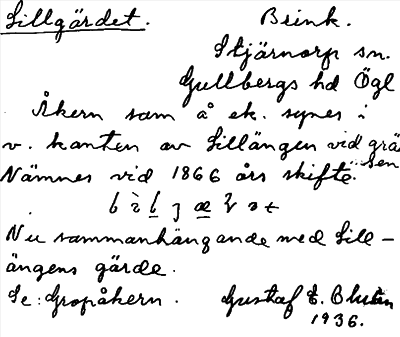 Lillgärdet. Brink.
Stjärnorp sn.
Gullbergs hd Ögl
Åkern som å ek. synes i
v. kanten av Lillängen vid grä
sen
Nämnes vid 1866 års skifte.
Nu sammanhängande med Lill-
ängens gärde.
Se: Gropåkern. Gustaf E.
1936.